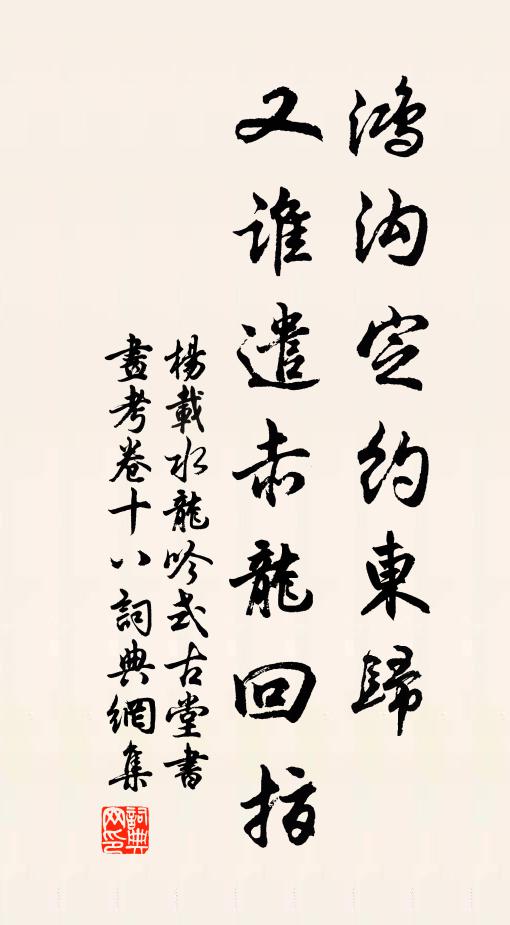 鴻沟定約東歸
又誰遣赤龍回指
楊載水龍吟式古堂書
畫考卷十八詞典網集
詞典
网印